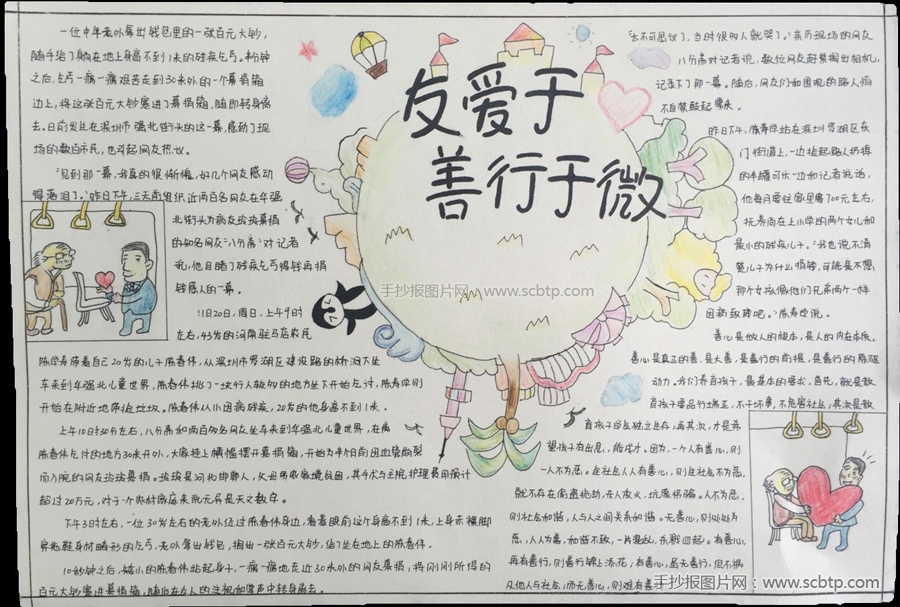 友爱于
善行于微
一位中年老外拿出钱包里的一张百元大钞,
随手给了躺在地上身高不到1米的残疾乞丐。秒钟
之后,乞丐一瘸一瘸艰苦走到30米外的一个募捐箱
边上,将这张百元大钞塞进了募捐箱,随即转身离
去。日前发生在深圳市强北街头的这一幕,感动了现
场的数百市民,也引起网友热议。
“见到那一幕,我真的很惭愧,好几个网友感动
得落泪了。”昨日下午,三天前组织近两百名网友在华强
北街头为病友琰琰募捐
的知名网友“八分斋”对记者
说,他目睹了残疾乞丐得钱再捐
钱感人的一幕。
11月20日,周日,上午9时
左右,43岁的河南驻马店农民
陈学寿带着自己20岁的儿子陈春伟,从深圳市罗湖区建设路的桥洞下坐
车来到华强北儿童世界,陈春伟挑了一块行人较多的地方坐下开始乞讨,陈寿学则
开始在附近地带捡垃圾。陈春伟从小因病残疾,20岁的他身高不到1米。
上午10时30分左右,八分斋和两百多名网友坐车来到华强北儿童世界,在离
陈春伟乞讨的地方30米开外,大家挂上横幅摆开募捐箱,开始为半个月前因血管病裂
而入院的网友琰琰募捐。琰琰是河北邯郸人,父母带家境贫困,其手术与住院护理费用预计
超过20万元,对于一个农村家庭来说无异是天文数字。
下午3时左右,一位30岁左右的老外经过陈春伟身边,看着眼前这个身高不到1米,上身赤裸脚
穿拖鞋身材畸形的乞丐,老外拿出钱包,掏出一张百元大钞,给了坐在地上的陈春伟。
10秒钟之后,矮小的陈春伟站起身子,一瘸一瘸地走近30米外的网友募捐,将刚刚所得的
百元大钞塞进募捐箱,随后在众人的注视和掌声中转身离去。
“太不可思议了,当时很多人就哭了。”亲历现场的网友
八分斋对记者说,数位网友赶紧掏出相机,
记录下了那一幕。随后,网友们和围观的路人而
不自禁鼓起掌来。
昨日下午,陈寿学站在深圳罗湖区东
门街道上,一边捡起路人扔掉
的半罐可乐一边和记者说话,
他每月要往家里寄700元左右,
抚养尚在上小学的两个女儿和
最小的残疾儿子。“我也说不清
楚儿子为什么捐钱,可能是不想
那个女孩像他们兄弟两个一样
因病致残吧。”陈寿学说。
善心是做人的根本,是人的内在本质。
善心是真正的善,是大善,是善行的前提,是善行的源强
动力。我们养育孩子,最基本的要求,首先,就是教
育孩子要品行端正,不干坏事,不危害社会;其次是教
育孩子学会独立生存;再其次,才是希
望孩子有出息,能成才。因为,一个人有善心,则
一人不为恶。在社会人人有善心,则是社会不为恶,
就不存在商盗抢劫、杀人放火、坑蒙拐骗。人不为恶,
则社会和谐,人与人之间关系和谐。无善心,则处处为
恶,人人为毒,和谐不致,一片混乱,杀戮四起。有善心,
再有善行,则善行锦上添花,有善心,虽无善行,但不损
及他人与社会,而无善心,则难有善
手抄报图片网:www.scbtp.com
手抄报图片网:www.scbtp.com